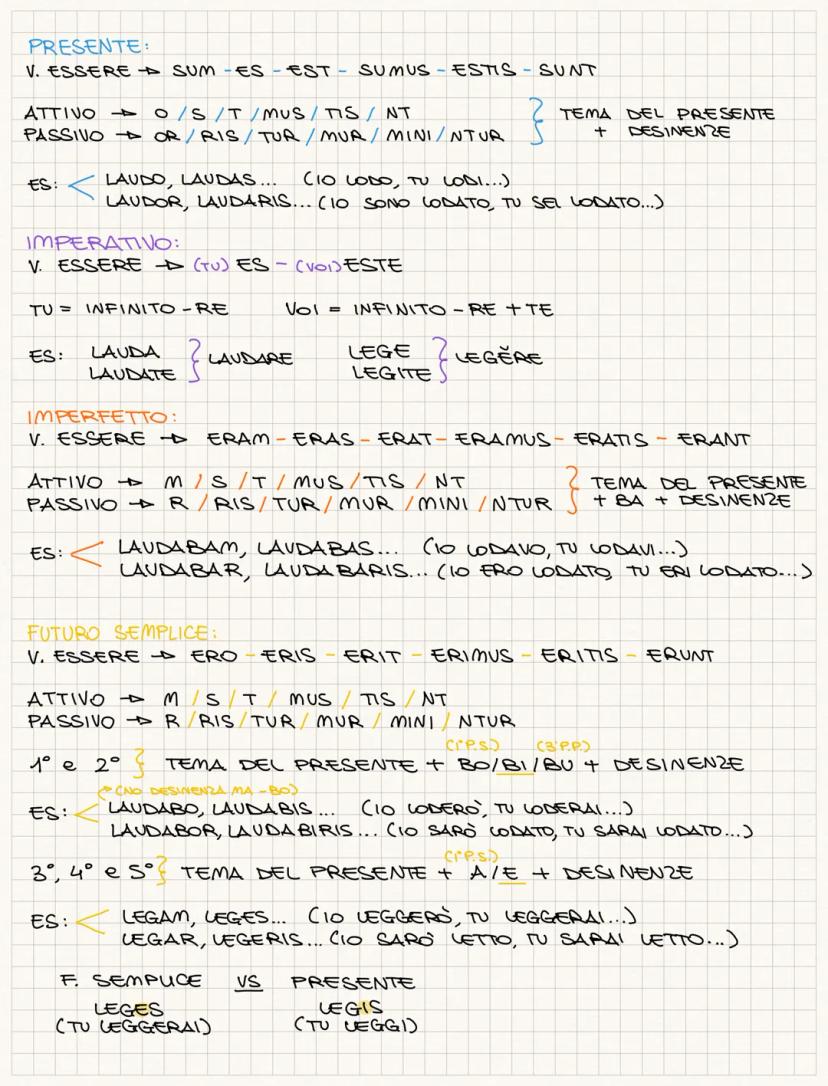 PRESENTE:
V. ESSERE → SUM - ES - EST - SUMUS - ESTIS - SUNT
ATTIVO → O / S / T / MUS / TIS / NT } TEMA DEL PRESENTE
PASSIVO → OR / RIS / TUR / MUR / MINI / NTUR + DESINENZE
ES: < LAUDO, LAUDAS... (IO LODO, TU LODI...)
LAUDOR, LAUDARIS... (IO SONO LODATO, TU SEI LODATO...)
IMPERATIVO:
V. ESSERE → (TU) ES - (VOI) ESTE
TU = INFINITO - RE VOI = INFINITO - RE + TE
ES: LAUDA } LAUDARE LEGE } LEGĔRE
LAUDATE LEGITE
IMPERFETTO:
V. ESSERE → ERAM - ERAS - ERAT - ERAMUS - ERATIS - ERANT
ATTIVO → M / S / T / MUS / TIS / NT } TEMA DEL PRESENTE
PASSIVO → R / RIS / TUR / MUR / MINI / NTUR + BA + DESINENZE
ES: < LAUDABAM, LAUDABAS... (IO LODAVO, TU LODAVI...)
LAUDABAR, LAUDABARIS... (IO ERO LODATO, TU ERI LODATO...)
FUTURO SEMPLICE:
V. ESSERE → ERO - ERIS - ERIT - ERIMUS - ERITIS - ERUNT
ATTIVO → M / S / T / MUS / TIS / NT
PASSIVO → R / RIS / TUR / MUR / MINI / NTUR
(1°P.S.) (3°P.P.)
1° e 2° } TEMA DEL PRESENTE + BO/BI/BU + DESINENZE
(NO DESINENZA MA -BO)
ES: < LAUDABO, LAUDABIS... (IO LODERÒ, TU LODERAI...)
LAUDABOR, LAUDABIRIS... (IO SARÒ LODATO, TU SARAI LODATO...)
(1°P.S.)
3°, 4° e 5° } TEMA DEL PRESENTE + A/E + DESINENZE
ES: < LEGAM, LEGES... (IO LEGGERÒ, TU LEGGERAI...)
LEGAR, LEGERIS... (IO SARÒ LETTO, TU SARAI LETTO...)
F. SEMPLICE VS PRESENTE
LEGES LEGIS
(TU LEGGERAI) (TU LEGGI)